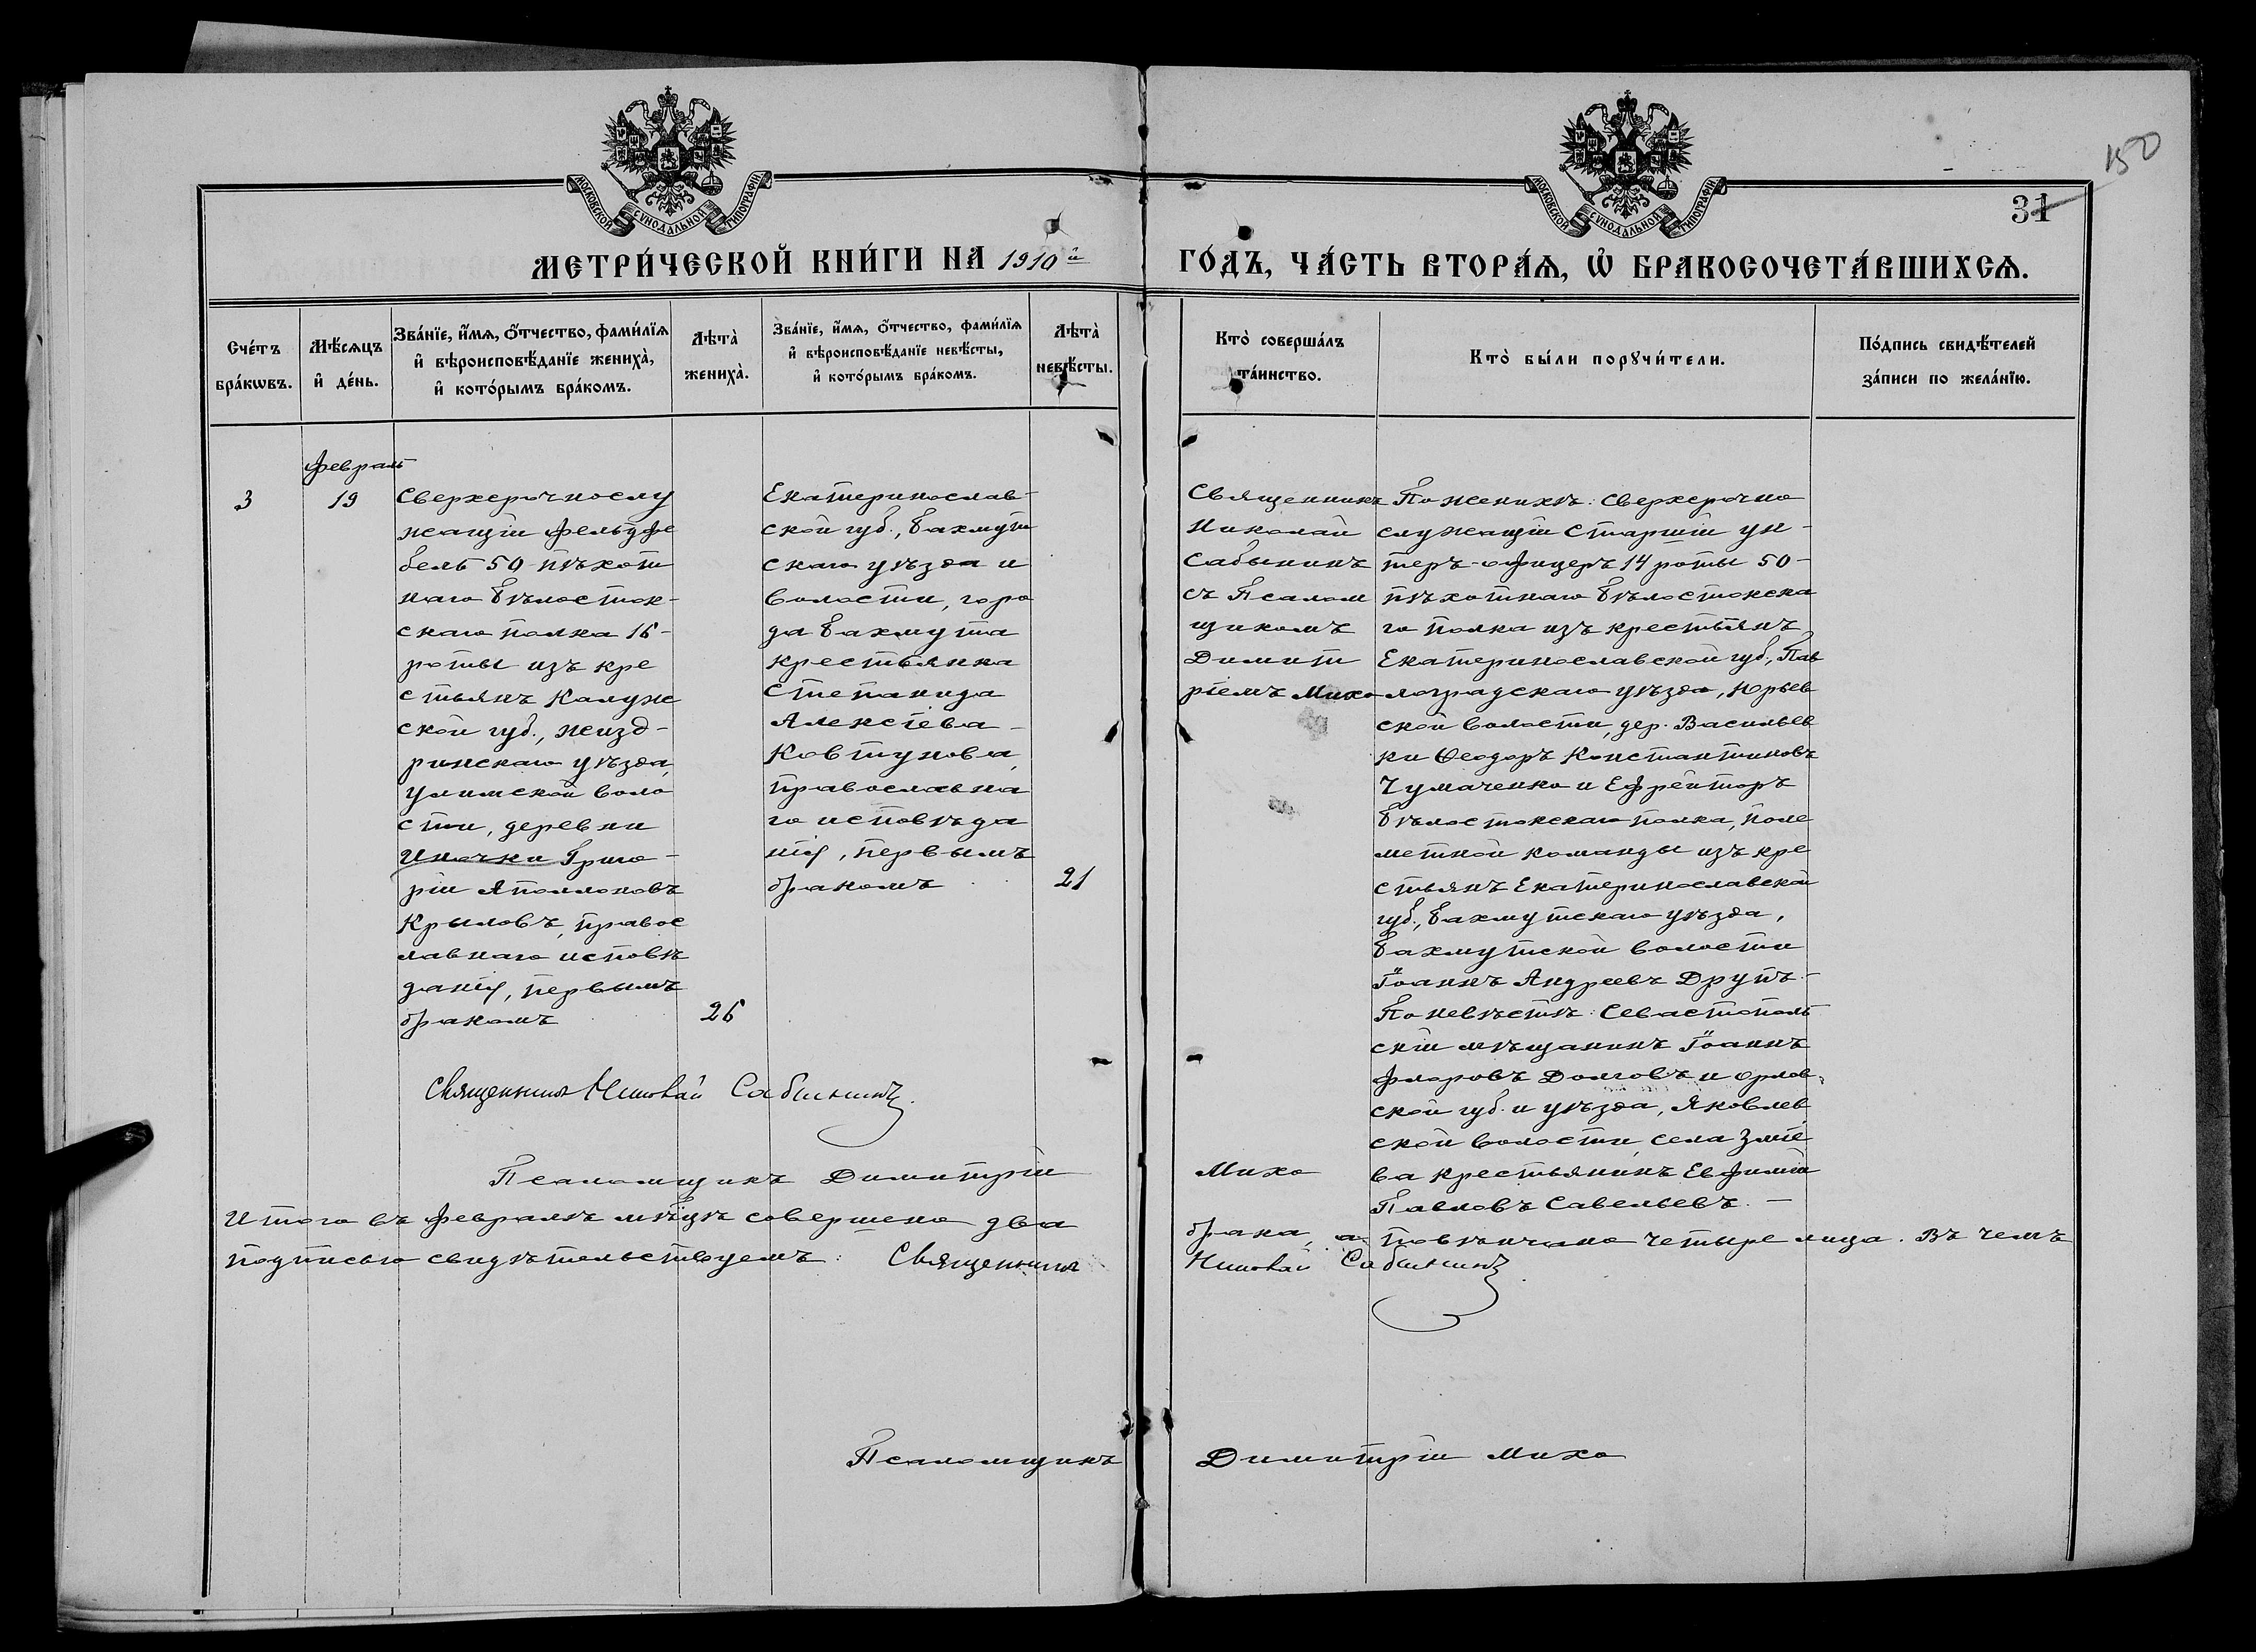 150
31
МОСКОВСКОЙ СѴНОДАЛЬНОЙ ТИПОГРАФІИ
МОСКОВСКОЙ СѴНОДАЛЬНОЙ ТИПОГРАФІИ
МЕТРИ́ЧЕСКОЙ КНИ́ГИ НА 1910й ГО́ДЪ, ЧА́СТЬ ВТОРА́Ѧ, Ѡ҆ БРАКОСОЧЕТА́ВШИХСѦ.
Сче́тъ
бра́кѡвъ.
Мѣ́сѧцъ
и҆ де́нь.
Зва́нїе, и҆́мѧ, ѻ҆́тчество, фами́лїѧ
и҆ вѣроисповѣ́данїе жениха̀,
и҆ кото́рымъ бра́комъ.
Лѣта̀
жениха̀.
Зва́нїе, и҆́мѧ, ѻ҆́тчество, фами́лїѧ
и҆ вѣроисповѣ́данїе невѣ́сты,
и҆ кото́рымъ бра́комъ.
Лѣта̀
невѣ́сты.
Кто̀ соверша́лъ
та́инство.
Кто̀ бы́ли порꙋчи́тели.
По́дпись свидѣ́телей
за́писи по жела́нїю.
3
февраль
19
Сверхсрочнослу
жащій фельдфе
бель 50 пѣхот
наго Бѣлосток-
скаго полка 16-
роты изъ кре
стьянъ Калуж
ской губ., Жизд-
ринскаго уѣзда,
Улимской воло
сти, деревни
Григо-
рій Аполлоновъ
Крыловъ, правос
лавнаго исповѣ
данія, первымъ
бракомъ
26
Екатеринослав-
ской губ., Бахмут
скаго уѣзда и
волости, горо
да Бахмута
крестьянка
Степанида
Алексіева-
Ковтунова,
православна
го исповѣда
нія, первымъ
бракомъ
21
Священникъ
Николай
Сабынинъ
съ Псалом
щикомъ
Димит
ріемъ Михо
По женихѣ: Сверхсрочно
служащій старшій ун-
теръ-офицеръ 14 роты 50-
пѣхотнаго Бѣлостокска
го полка изъ крестьянъ
Екатеринославской губ., Пав
лоградскаго уѣзда, Юрьев
ской волости, дер. Васильев
ки Ѳеодоръ Константиновъ
Чумаченко и Ефрейторъ
Бѣлостокскаго полка, пуле
метной команды изъ кре
стьянъ Екатеринославской
губ., Бахмутскаго уѣзда,
Бахмутской волости
Іоаннъ Андреевъ Друпъ.-
По невѣстѣ: Севастополь
скій мѣщанинъ Іоаннъ
Флоровъ Долговъ и Орлов-
ской губ. и уѣзда, Яковлев
ской волости, села Зміе
ва крестьянинъ Евфимій
Павловъ Савельевъ.-
Священникъ Николай Сабынинъ.
Псаломщикъ Димитрій Михо
Итого въ февралѣ мѣцѣ совершено два брака, а повѣнчано четыре лица. Въ чемъ
подписью свидѣтельствуемъ: Священникъ Николай Сабынинъ
Псаломщикъ Димитрій Михо